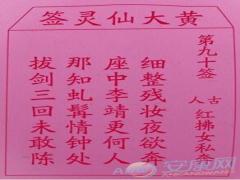 黄大仙灵签
第九十签
古人
红拂女私
细整残妆夜欲奔
座中李靖更何人
那知虬髯情钟处
拔剑三回未敢陈